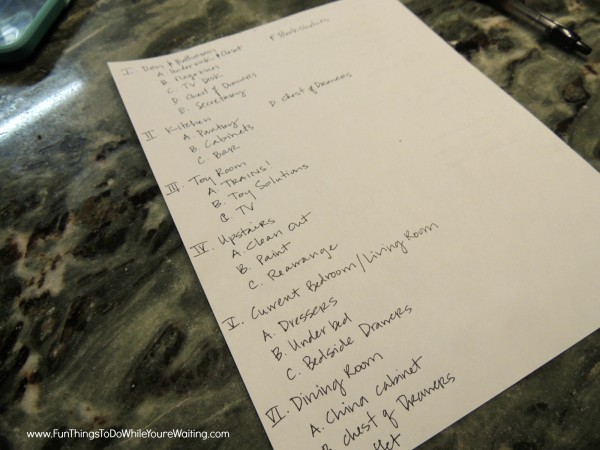 I. Den & Bathroom
A. Under sink & Closet
B. Magazines
C. TV Desk
D. Chest of Drawers
E. Secretary
F. Bookshelves
II. Kitchen
A. Pantry
B. Cabinets
C. Bar
D. Chest of Drawers
III. Toy Room
A. TRAINS!
B. Toy Solutions
C. TV
IV. Upstairs
A. Clean out
B. Paint
C. Rearrange
V. Current Bedroom/Living Room
A. Dressers
B. Under bed
C. Bedside Drawers
VI. Dining Room
A. China Cabinet
B. Chest of Drawers
www.FunThingsToDoWhileYoureWaiting.com